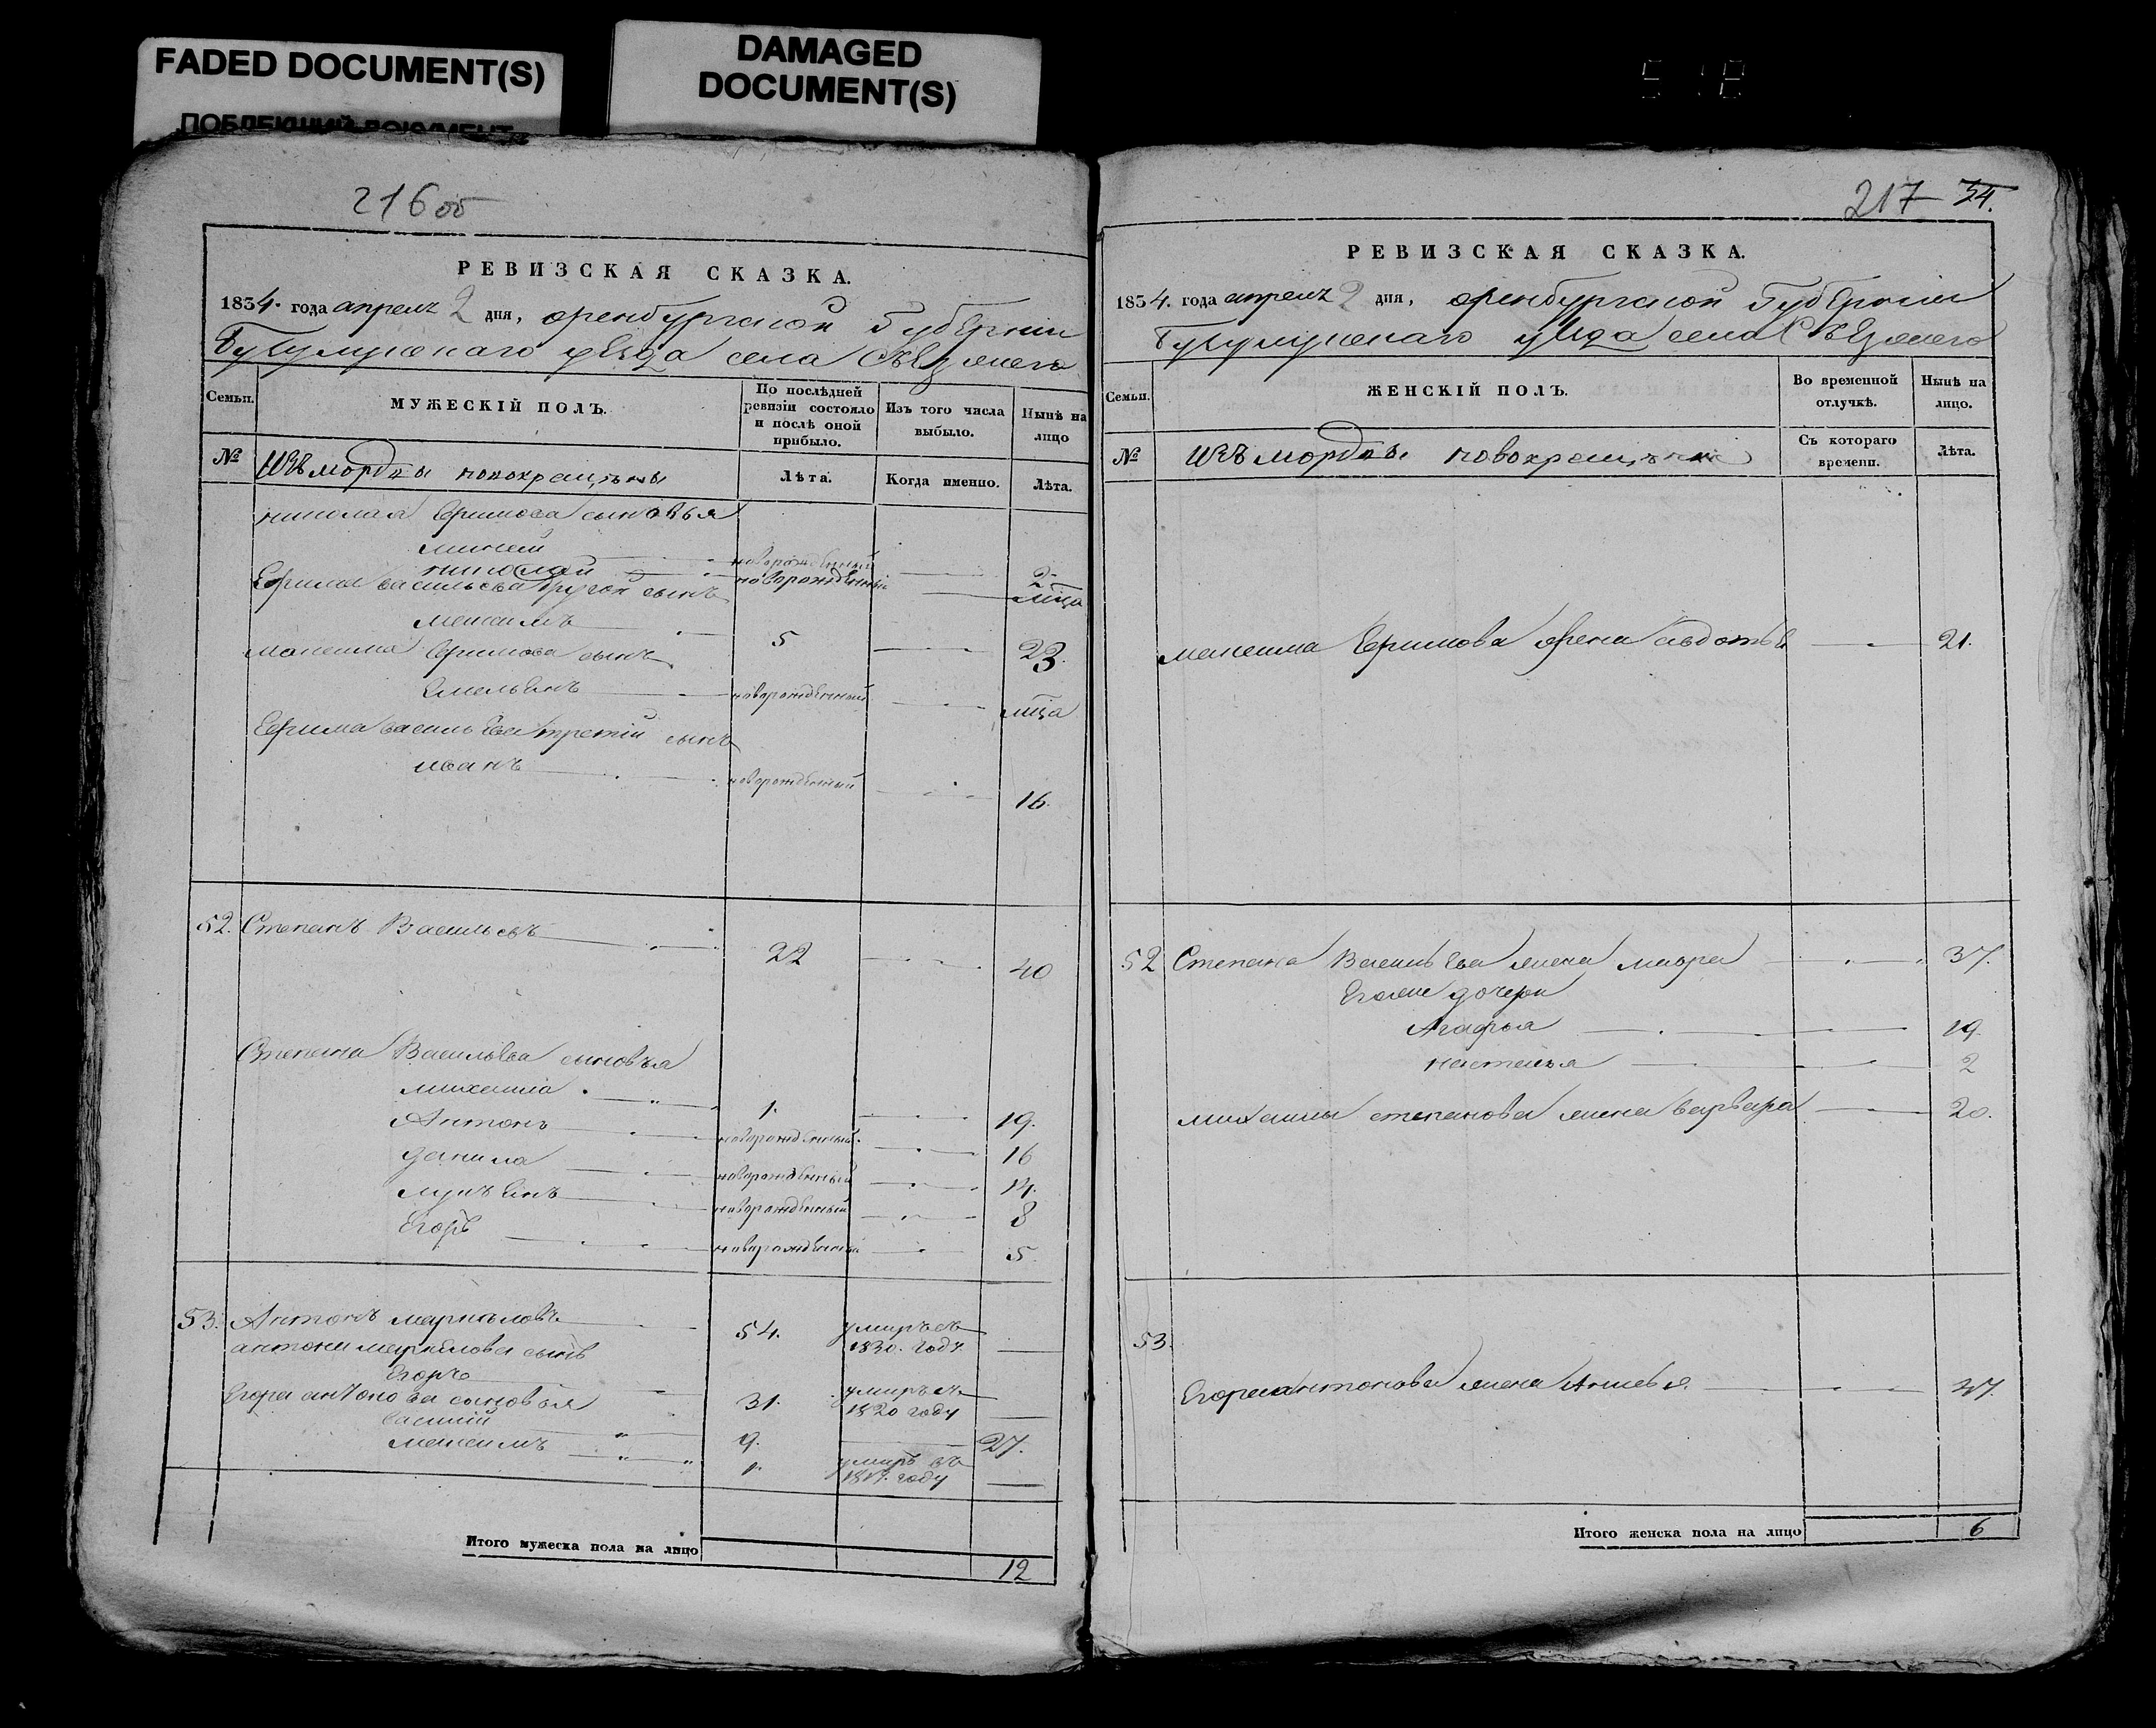 FADED DOCUMENT(S)
ПОБЛЕКШИЙ ДОКУМЕНТ
DAMAGED
DOCUMENT(S)
216 об
РЕВИЗСКАЯ СКАЗКА.
1834. года апреля 2 дня, оренбургской Губернии
Бугульминскаго уезда села
Семьи.
МУЖЕСКІЙ ПОЛЪ.
По послѣдней ревизіи состояло и послѣ оной прибыло.
Изъ того числа выбыло.
Нынѣ на лицо
№
Изъ мордвы новокрещены
Лѣта.
Когда именно.
Лѣта.
николая Ефимова сыновья
миней новорожденный 2
николай новорожденный
Ефима васильева другой сынъ
максимъ 5 23.
максима Ефимова сынъ
Емельянъ новорожденный
Ефима васильева третий сынъ
иванъ новорожденный 16.
52. Степанъ Васильевъ 22 40
Степана Васильева сыновья
михаила 1. 19.
Антонъ новорожденный 16
данила новорожденный 14.
лукъянъ новорожденный 8
Егоръ новорожденный 5
53. Антонъ 54. умиръ въ 1830. году
антона сынъ
Егоръ 31. умиръ въ 1820 году
Егора антонова сыновья
василий 9. 27.
максимъ 1. умиръ въ году
Итого мужеска пола на лицо 12
217 54.
РЕВИЗСКАЯ СКАЗКА.
1834. года апреля 2 дня, оренбургской Губернии
Бугульминскаго уезда села
Семьи.
ЖЕНСКІЙ ПОЛЪ.
Во временной отлучкѣ.
Нынѣ на лицо.
№
Изъ мордвы новокрещены
Съ котораго времени.
Лѣта.
максима Ефимова жена авдотья 21.
52 Степана Васильева жена мавра 37.
Егоже дочери
Агафья 19.
настасья 2
михаилы степанова жена варвара 20.
53.
Егора антонова жена 47.
Итого женска пола на лицо 6